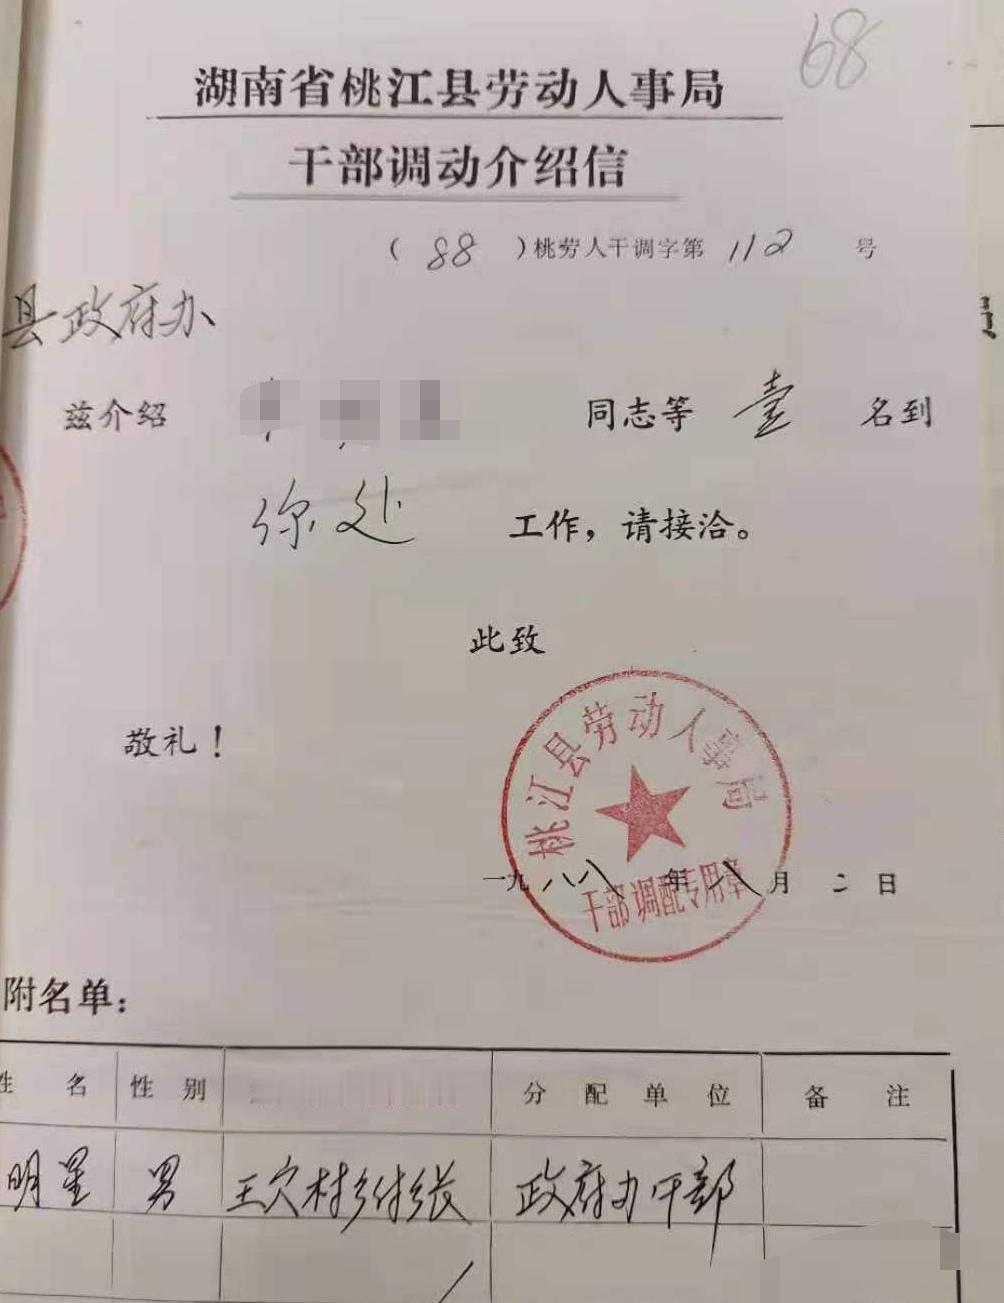 68
湖南省桃江县劳动人事局
干部调动介绍信
( 88 )桃劳人干调字第 112 号
县政府办
兹介绍 同志等 壹 名到
你处 工作，请接洽。
此致
敬礼！
桃江县劳动人事局
干部调配专用章
一九八八年八月二日
附名单：
姓 名 性 别 分 配 单 位 备 注
明星 男 政府办干部